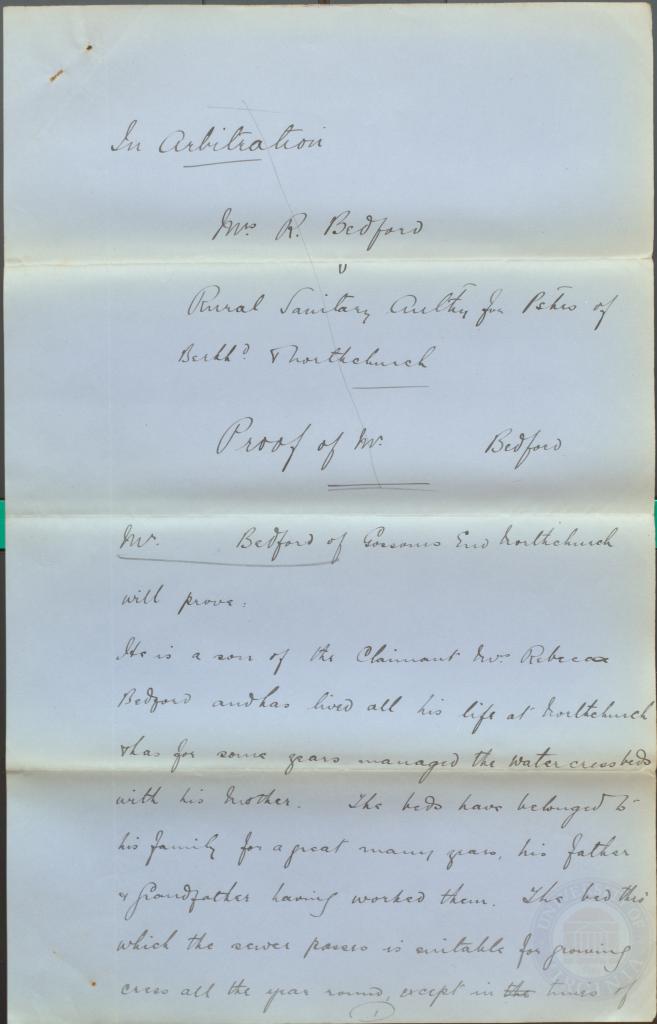 In Arbitration
Mrs R. Bedford
v
Rural Sanitary Authty for Pshes of
Berkhd & Northchurch
Proof of Mr. Bedford
Mr. Bedford of Gossoms End Northchurch
will prove:
He is a son of the Claimant Mrs. Rebecca
Bedford and has lived all his life at Northchurch
& has for some years managed the watercress beds
with his Mother. The beds have belonged to
his family for a great many years, his father
& Grandfather having worked them. The bed thro
which the sewer passes is suitable for growing
cress all the year round, except in the times of
1
UNIVERSITY OF VIRGINIA